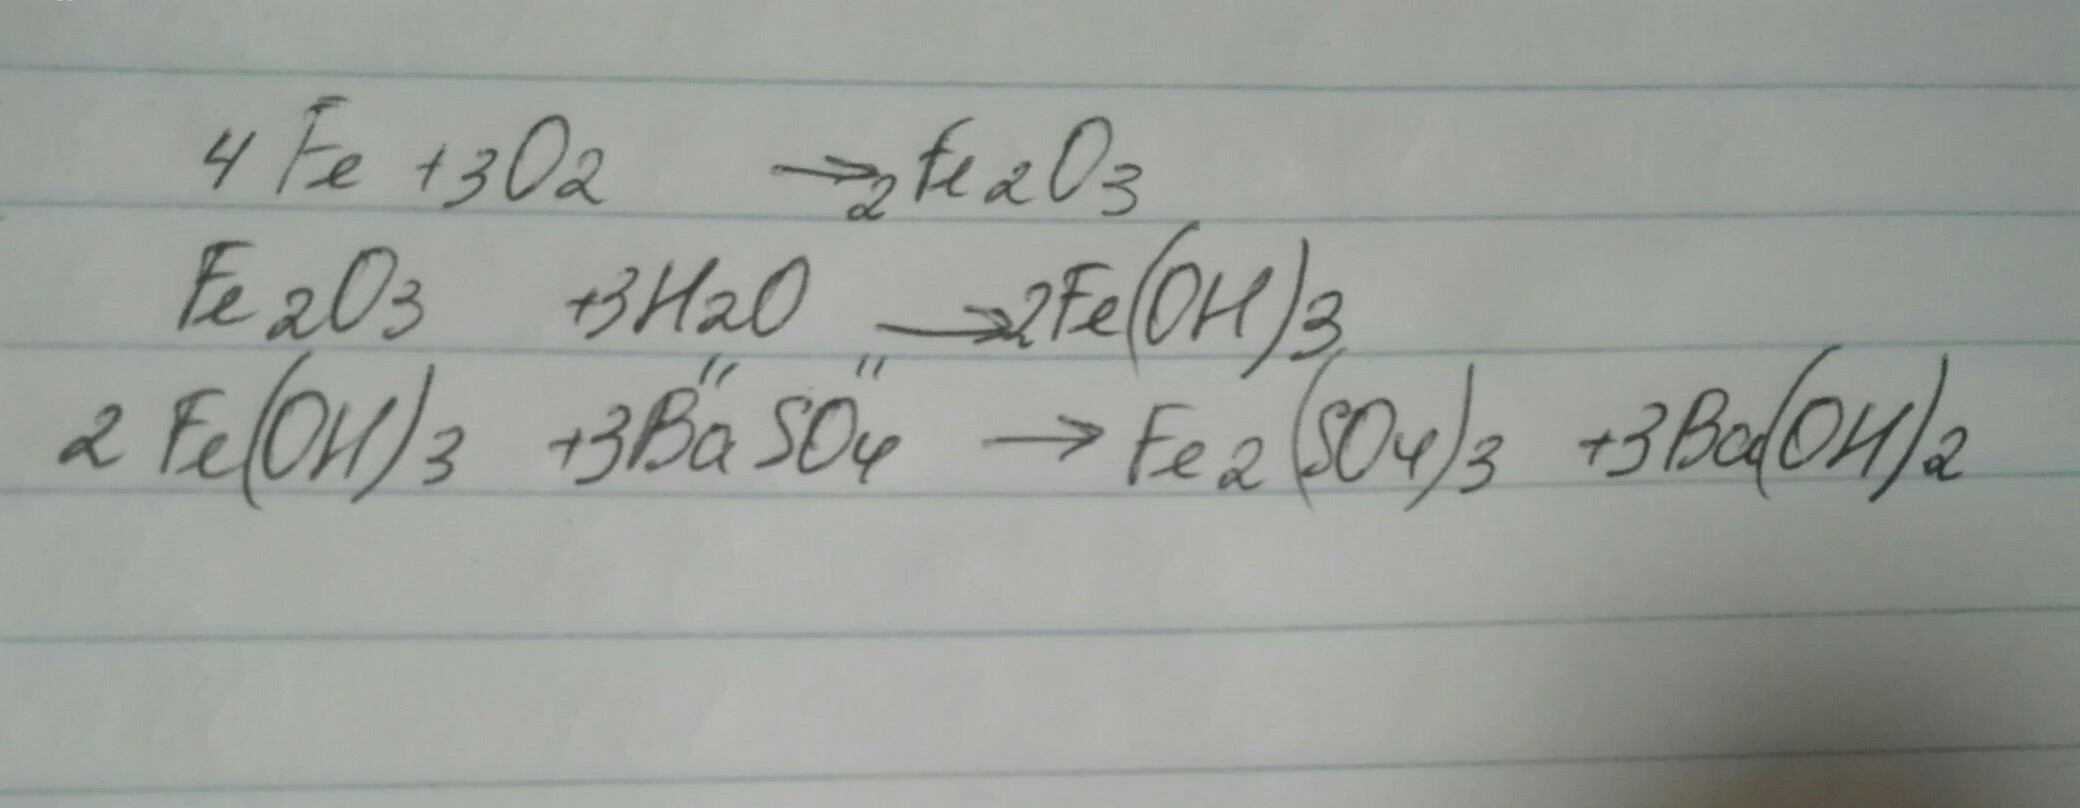 4 Fe + 3O2 → 2Fe2O3
Fe2O3 + 3H2O → 2Fe(OH)3
2 Fe(OH)3 + 3Ba"SO4" → Fe2(SO4)3 + 3Ba(OH)2